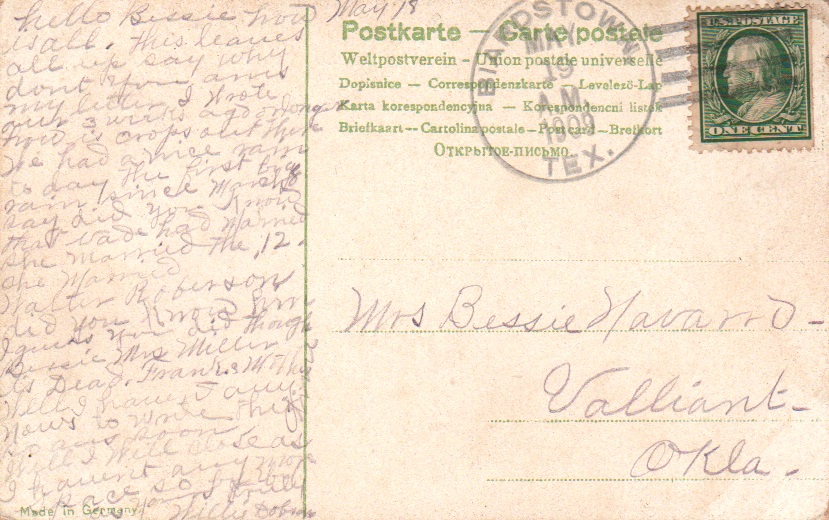 May 18
hello Bessie how
is all. this leaves
all up. say why
dont you ans
my letter I wrote
over 3 weeks ago or longer
how is crops out there
We had a nice rain
to day the first big
rain since March
say did you know
that Wade had Married
she married the 12.
she Married
Walter Roberson
did you know him
I guess you did though
Bessie Mrs Miller
is Dead. Frank's
Well I havent any
news to write this
so ans soon
Well I will close as
I havent any more
space so
Yours truly
Willie Dobson
Made in Germany
Postkarte — Carte postale
Weltpostverein — Union postale universelle
Dopisnice — Correspondenzkarte — Levelező-Lap
Karta korespondencyjna — Korespondencní listek
Briefkaart — Cartolina postale — Post card — Brefkort
Открытое-письмо
BIARDSTOWN
MAY
19
1909
TEX.
U.S. POSTAGE
ONE CENT
Mrs Bessie Navarro -
Valliant -
Okla.